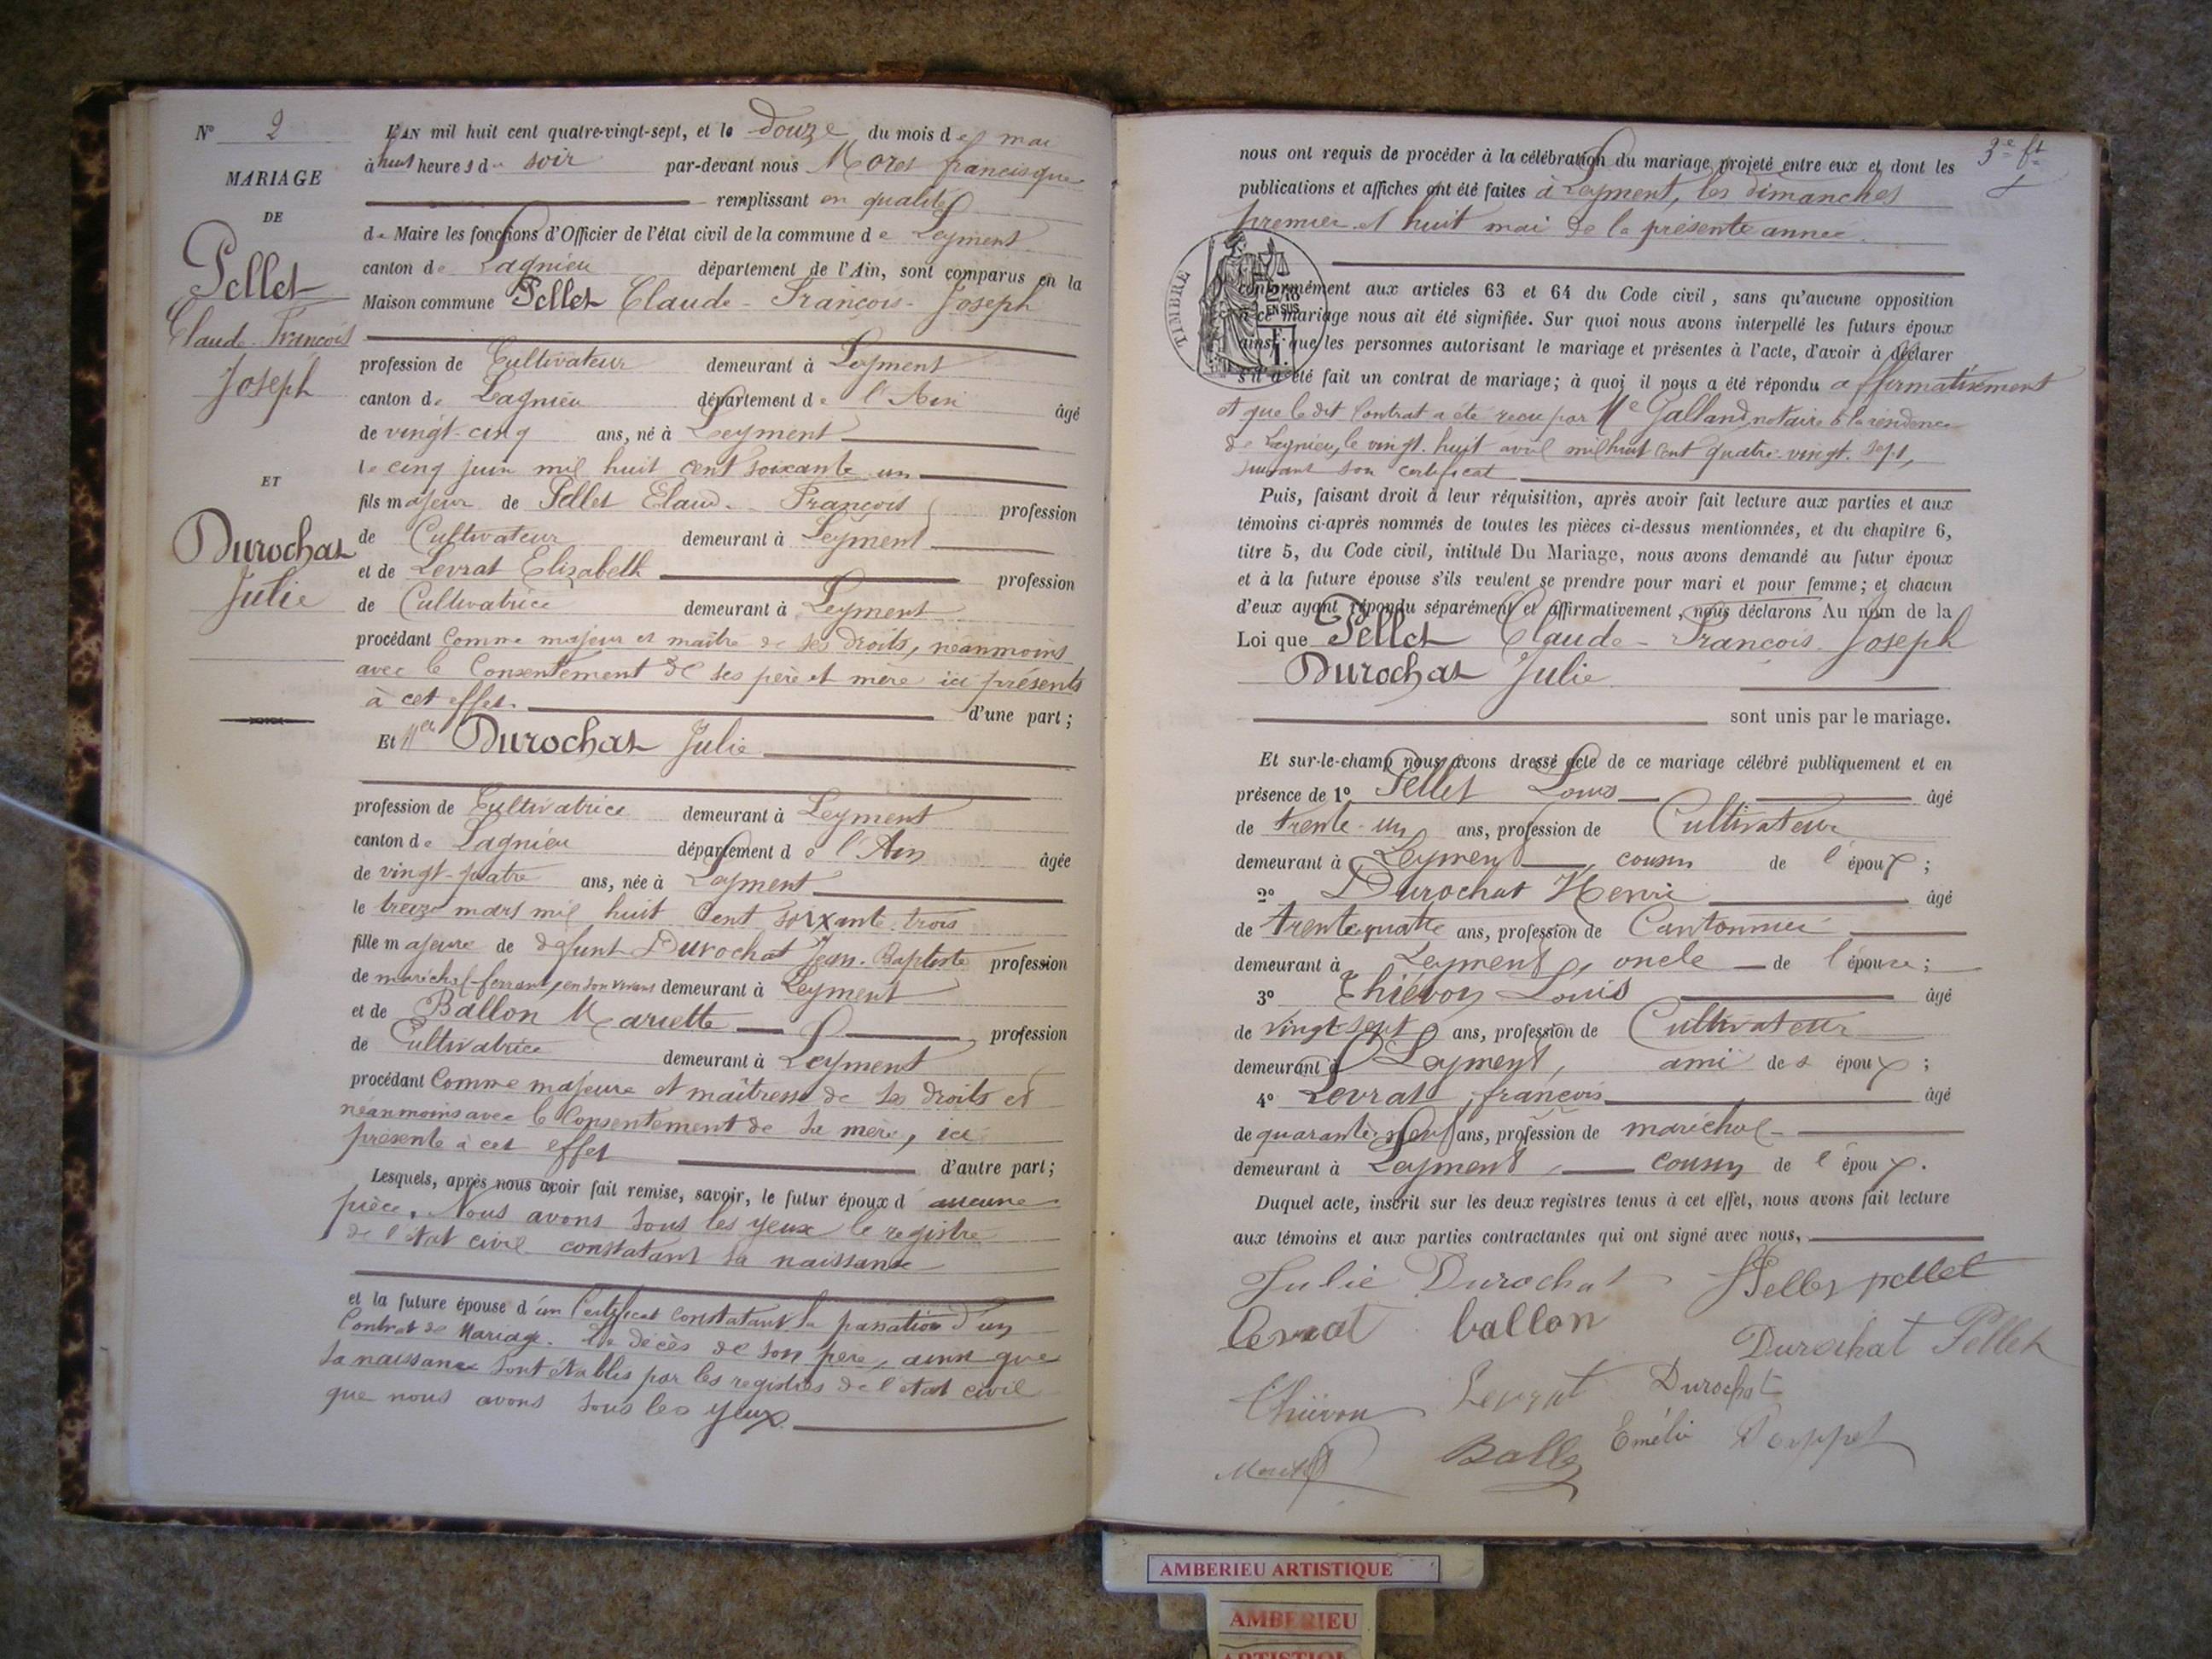 N° 2
MARIAGE
DE
Pellet
Claude-François
Joseph
ET
Durochat
Julie
L'AN mil huit cent quatre-vingt-sept, et le douze du mois de mai
à huit heures du soir par-devant nous Moret francisque
remplissant en qualité
de Maire les fonctions d'Officier de l'état civil de la commune de Leyment
canton de Lagnieu département de l'Ain, sont comparus en la
Maison commune Pellet Claude-François-Joseph
profession de Cultivateur demeurant à Leyment
canton de Lagnieu département de l'Ain âgé
de vingt-cinq ans, né à Leyment
le cinq juin mil huit cent soixante-un
fils majeur de Pellet Claude-François profession
de Cultivateur demeurant à Leyment
et de Levrat Elizabeth profession
de Cultivatrice demeurant à Leyment
procédant Comme majeur et maître de ses droits, néanmoins
avec le Consentement de ses père et mère ici présents
à cet effet. d'une part;
Et Melle Durochat Julie
profession de Cultivatrice demeurant à Leyment
canton de Lagnieu département de l'Ain âgée
de vingt-quatre ans, née à Leyment
le treize mars mil huit cent soixante-trois
fille majeure de defunt Durochat Jean-Baptiste profession
de maréchal-ferrant, en son vivant demeurant à Leyment
et de Ballon Mariette profession
de Cultivatrice demeurant à Leyment
procédant Comme majeure et maîtresse de ses droits et
néanmoins avec le Consentement de sa mère, ici
présente à cet effet d'autre part;
Lesquels, après nous avoir fait remise, savoir, le futur époux d'aucune
pièce. Nous avons sous les yeux le registre
de l'état civil constatant sa naissance
et la future épouse d'un Certificat constatant la passation d'un
Contrat de Mariage. Le décès de son père, ainsi que
sa naissance sont établis par les registres de l'état civil
que nous avons sous les yeux.
3e ft
nous ont requis de procéder à la célébration du mariage projeté entre eux et dont les
publications et affiches ont été faites à Leyment, les dimanches
premier et huit mai de la présente année.
TIMBRE
2/10 EN SUS
conformément aux articles 63 et 64 du Code civil, sans qu'aucune opposition
à ce mariage nous ait été signifiée. Sur quoi nous avons interpellé les futurs époux
ainsi que les personnes autorisant le mariage et présentes à l'acte, d'avoir à déclarer
s'il a été fait un contrat de mariage; à quoi il nous a été répondu affirmativement
et que le dit Contrat a été reçu par Me Galland, notaire à la résidence
de Lagnieu, le vingt-huit avril mil huit cent quatre-vingt-sept,
suivant son certificat
Puis, faisant droit à leur réquisition, après avoir fait lecture aux parties et aux
témoins ci-après nommés de toutes les pièces ci-dessus mentionnées, et du chapitre 6,
titre 5, du Code civil, intitulé Du Mariage, nous avons demandé au futur époux
et à la future épouse s'ils veulent se prendre pour mari et pour femme; et chacun
d'eux ayant répondu séparément et affirmativement, nous déclarons Au nom de la
Loi que Pellet Claude-François-Joseph
Durochat Julie
sont unis par le mariage.
Et sur-le-champ nous avons dressé acte de ce mariage célébré publiquement et en
présence de 1° Pellet Louis âgé
de trente-un ans, profession de Cultivateur
demeurant à Leyment, cousin de l'époux;
2° Durochat Henri âgé
de trente quatre ans, profession de Cantonnier
demeurant à Leyment, oncle de l'épouse;
3° Thiévon Louis âgé
de vingt-sept ans, profession de Cultivateur
demeurant à Leyment, ami des époux;
4° Levrat, françois âgé
de quarante-neuf ans, profession de maréchal
demeurant à Leyment, cousin de l'époux.
Duquel acte, inscrit sur les deux registres tenus à cet effet, nous avons fait lecture
aux témoins et aux parties contractantes qui ont signé avec nous,
Julie Durochat Pellet pellet
Levrat ballon
Durochat Pellet
Thiévon Levrat Durochat
Emélie
AMBERIEU ARTISTIQUE
AMBERIEU
ARTISTIQUE